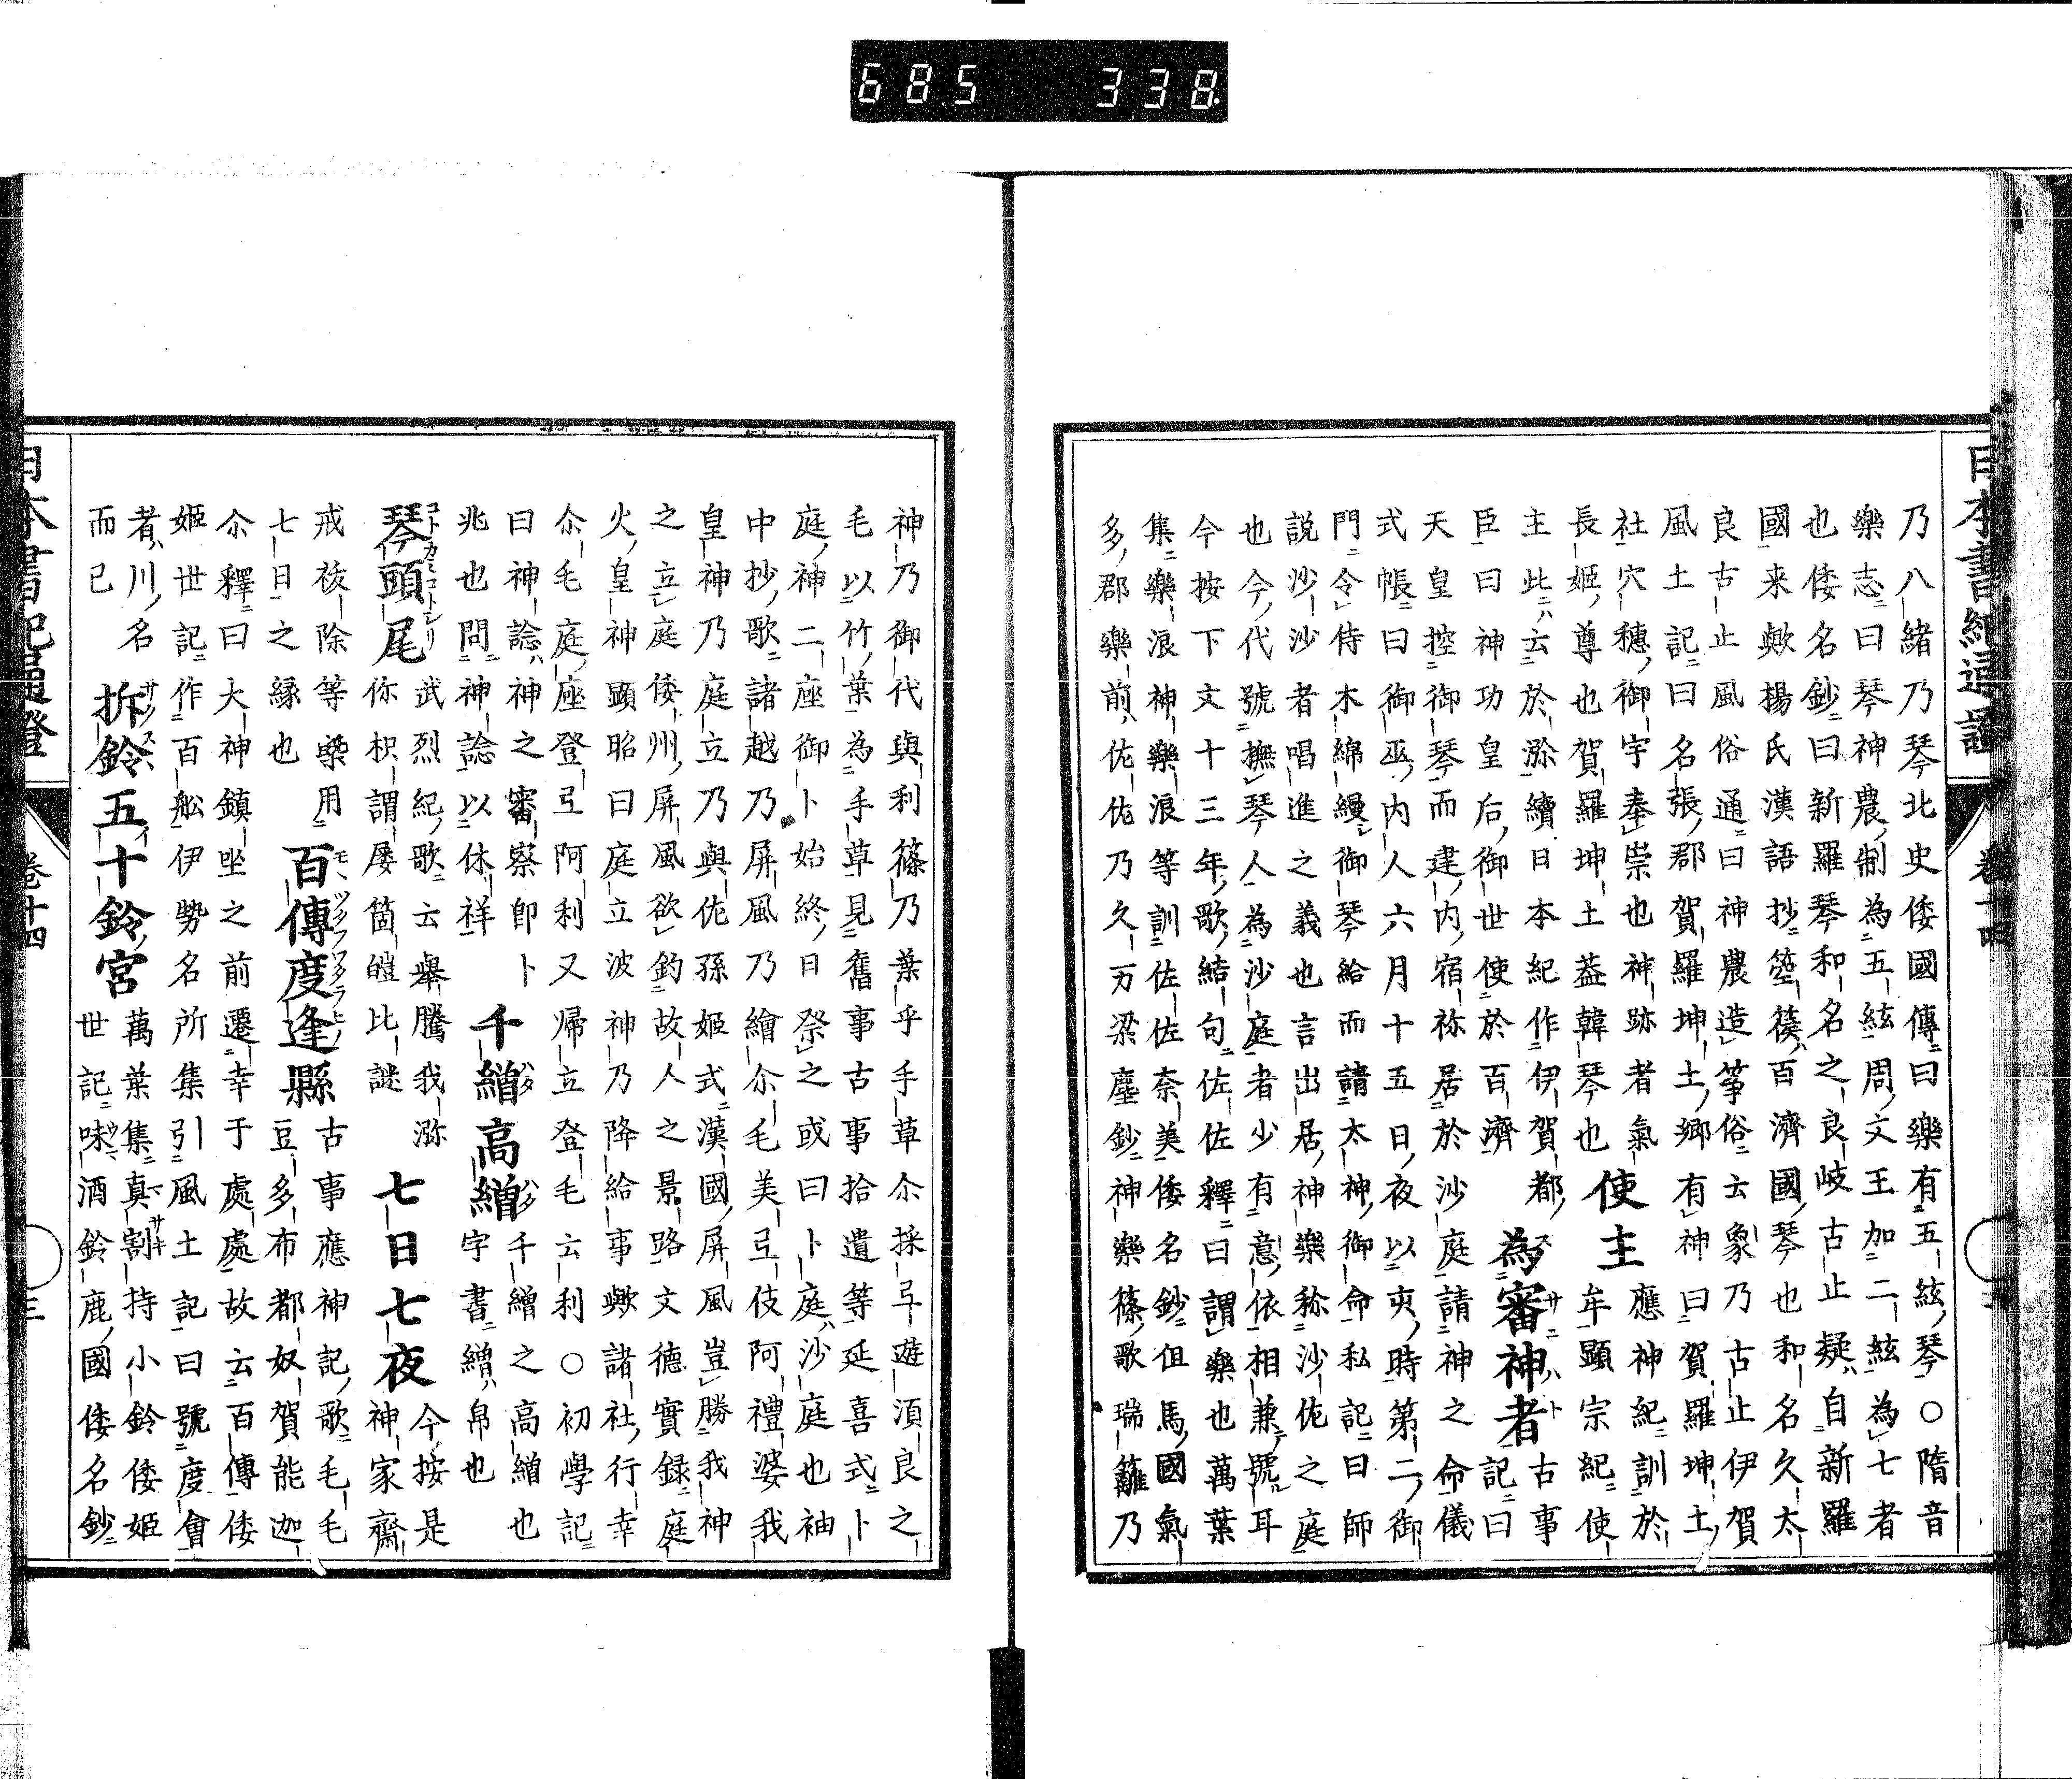 685 338
乃八緒乃琴北史倭國傳曰樂有五絃琴○隋音
樂志曰琴神農制為五絃周文王加二絃為七者
也倭名鈔曰新羅琴和名之良岐古止疑自新羅
國来歟楊氏漢語抄箜篌百濟國琴也和名久太
良古止風俗通曰神農造箏俗云象乃古止伊賀
風土記曰名張郡賀羅坤土鄉有神曰賀羅坤土
社穴穗御宇奉崇也神跡者氣
長姬尊也賀羅坤土葢韓琴也
使主
應神紀訓於
主此云於瀰續日本紀作伊賀都
牟顯宗紀使
臣曰神功皇后御世使於百濟
為審神者
サニハト
古事
記曰
天皇控御琴而建內宿祢居於沙庭請神之命儀
式帳曰御巫內人六月十五日夜以亥時第二御
門令侍木綿縵御琴給而請太神御命私記曰師
說沙沙者唱進之義也言出居神樂称沙佐之庭
也今代號撫琴人為沙庭者少有意依相兼號耳
今按下文十三年歌結句佐佐釋曰謂樂也萬葉
集樂浪神樂浪等訓佐佐奈美倭名鈔但馬國氣
多郡樂前佐佐乃久万梁塵鈔神樂篠歌瑞籬乃
神乃御代與利篠乃葉乎手草尒採弖遊湏良之
毛以竹葉為手草見舊事古事拾遺等延喜式卜
庭神二座御卜始終日祭之或曰卜庭沙庭也袖
中抄歌諸越乃屏風乃繪尒毛美弖伎阿禮婆我
皇神乃庭立乃與佐孫姬式漢國屏風豈勝我神
之立庭倭州屏風欲釣故人之景路文德實録庭
火皇神顯昭曰庭立波神乃降給事歟諸社行幸
尒毛庭座登弖阿利又帰立登毛云利○初學記
曰神諗神之審察卽卜
兆也問神諗以休祥
千繒高繒
ハタハタ
千繒之高繒也
字書繒帛也
琴頭尾
コトカミコトシリ
武烈紀歌云擧騰我瀰
你枳謂屢箇皚比謎
七日七夜
今按是
神家齋
戒祓除等槩用
七日之縁也
百傳度逢縣
モヽツタフワタラヒノ
古事應神記歌毛毛
豆多布都奴賀能迦
尒釋曰大神鎮坐之前遷幸于處處故云百傳倭
姬世記作百舩伊勢名所集引風土記曰號度會
者川名
而已
拆鈴五十鈴宮
萬葉集真割持小鈴倭姬
世記味酒鈴鹿國倭名鈔